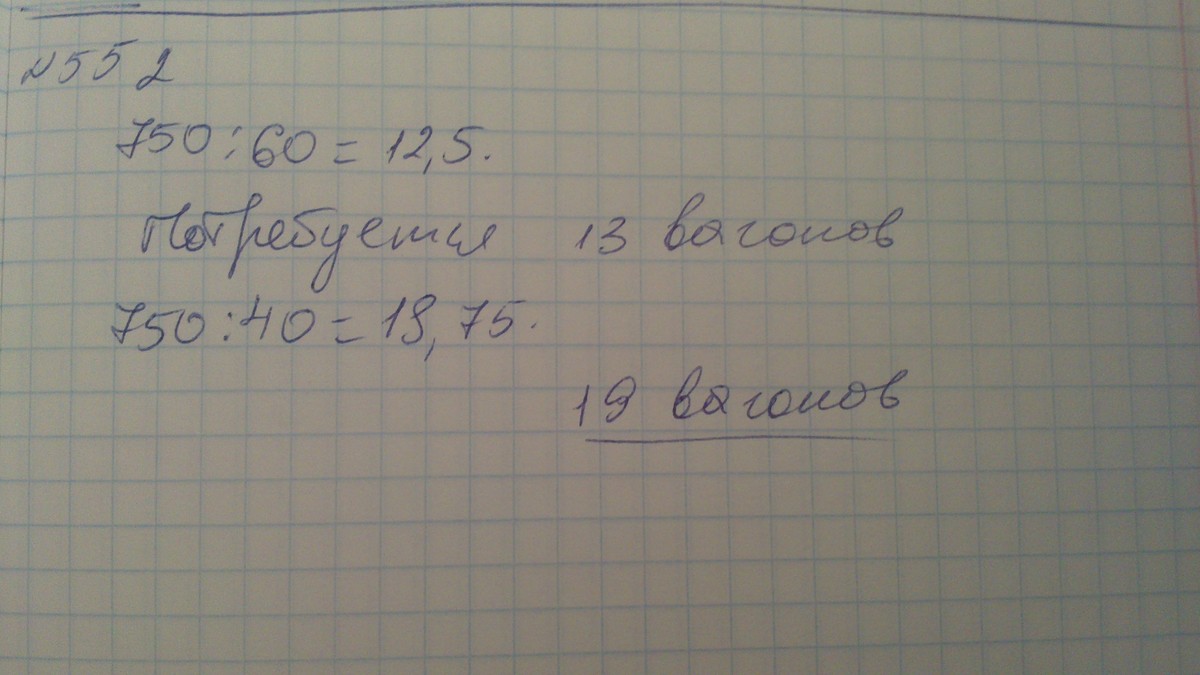 №552
750:60=12,5.
Потребуется 13 вагонов
750:40=18,75.
19 вагонов